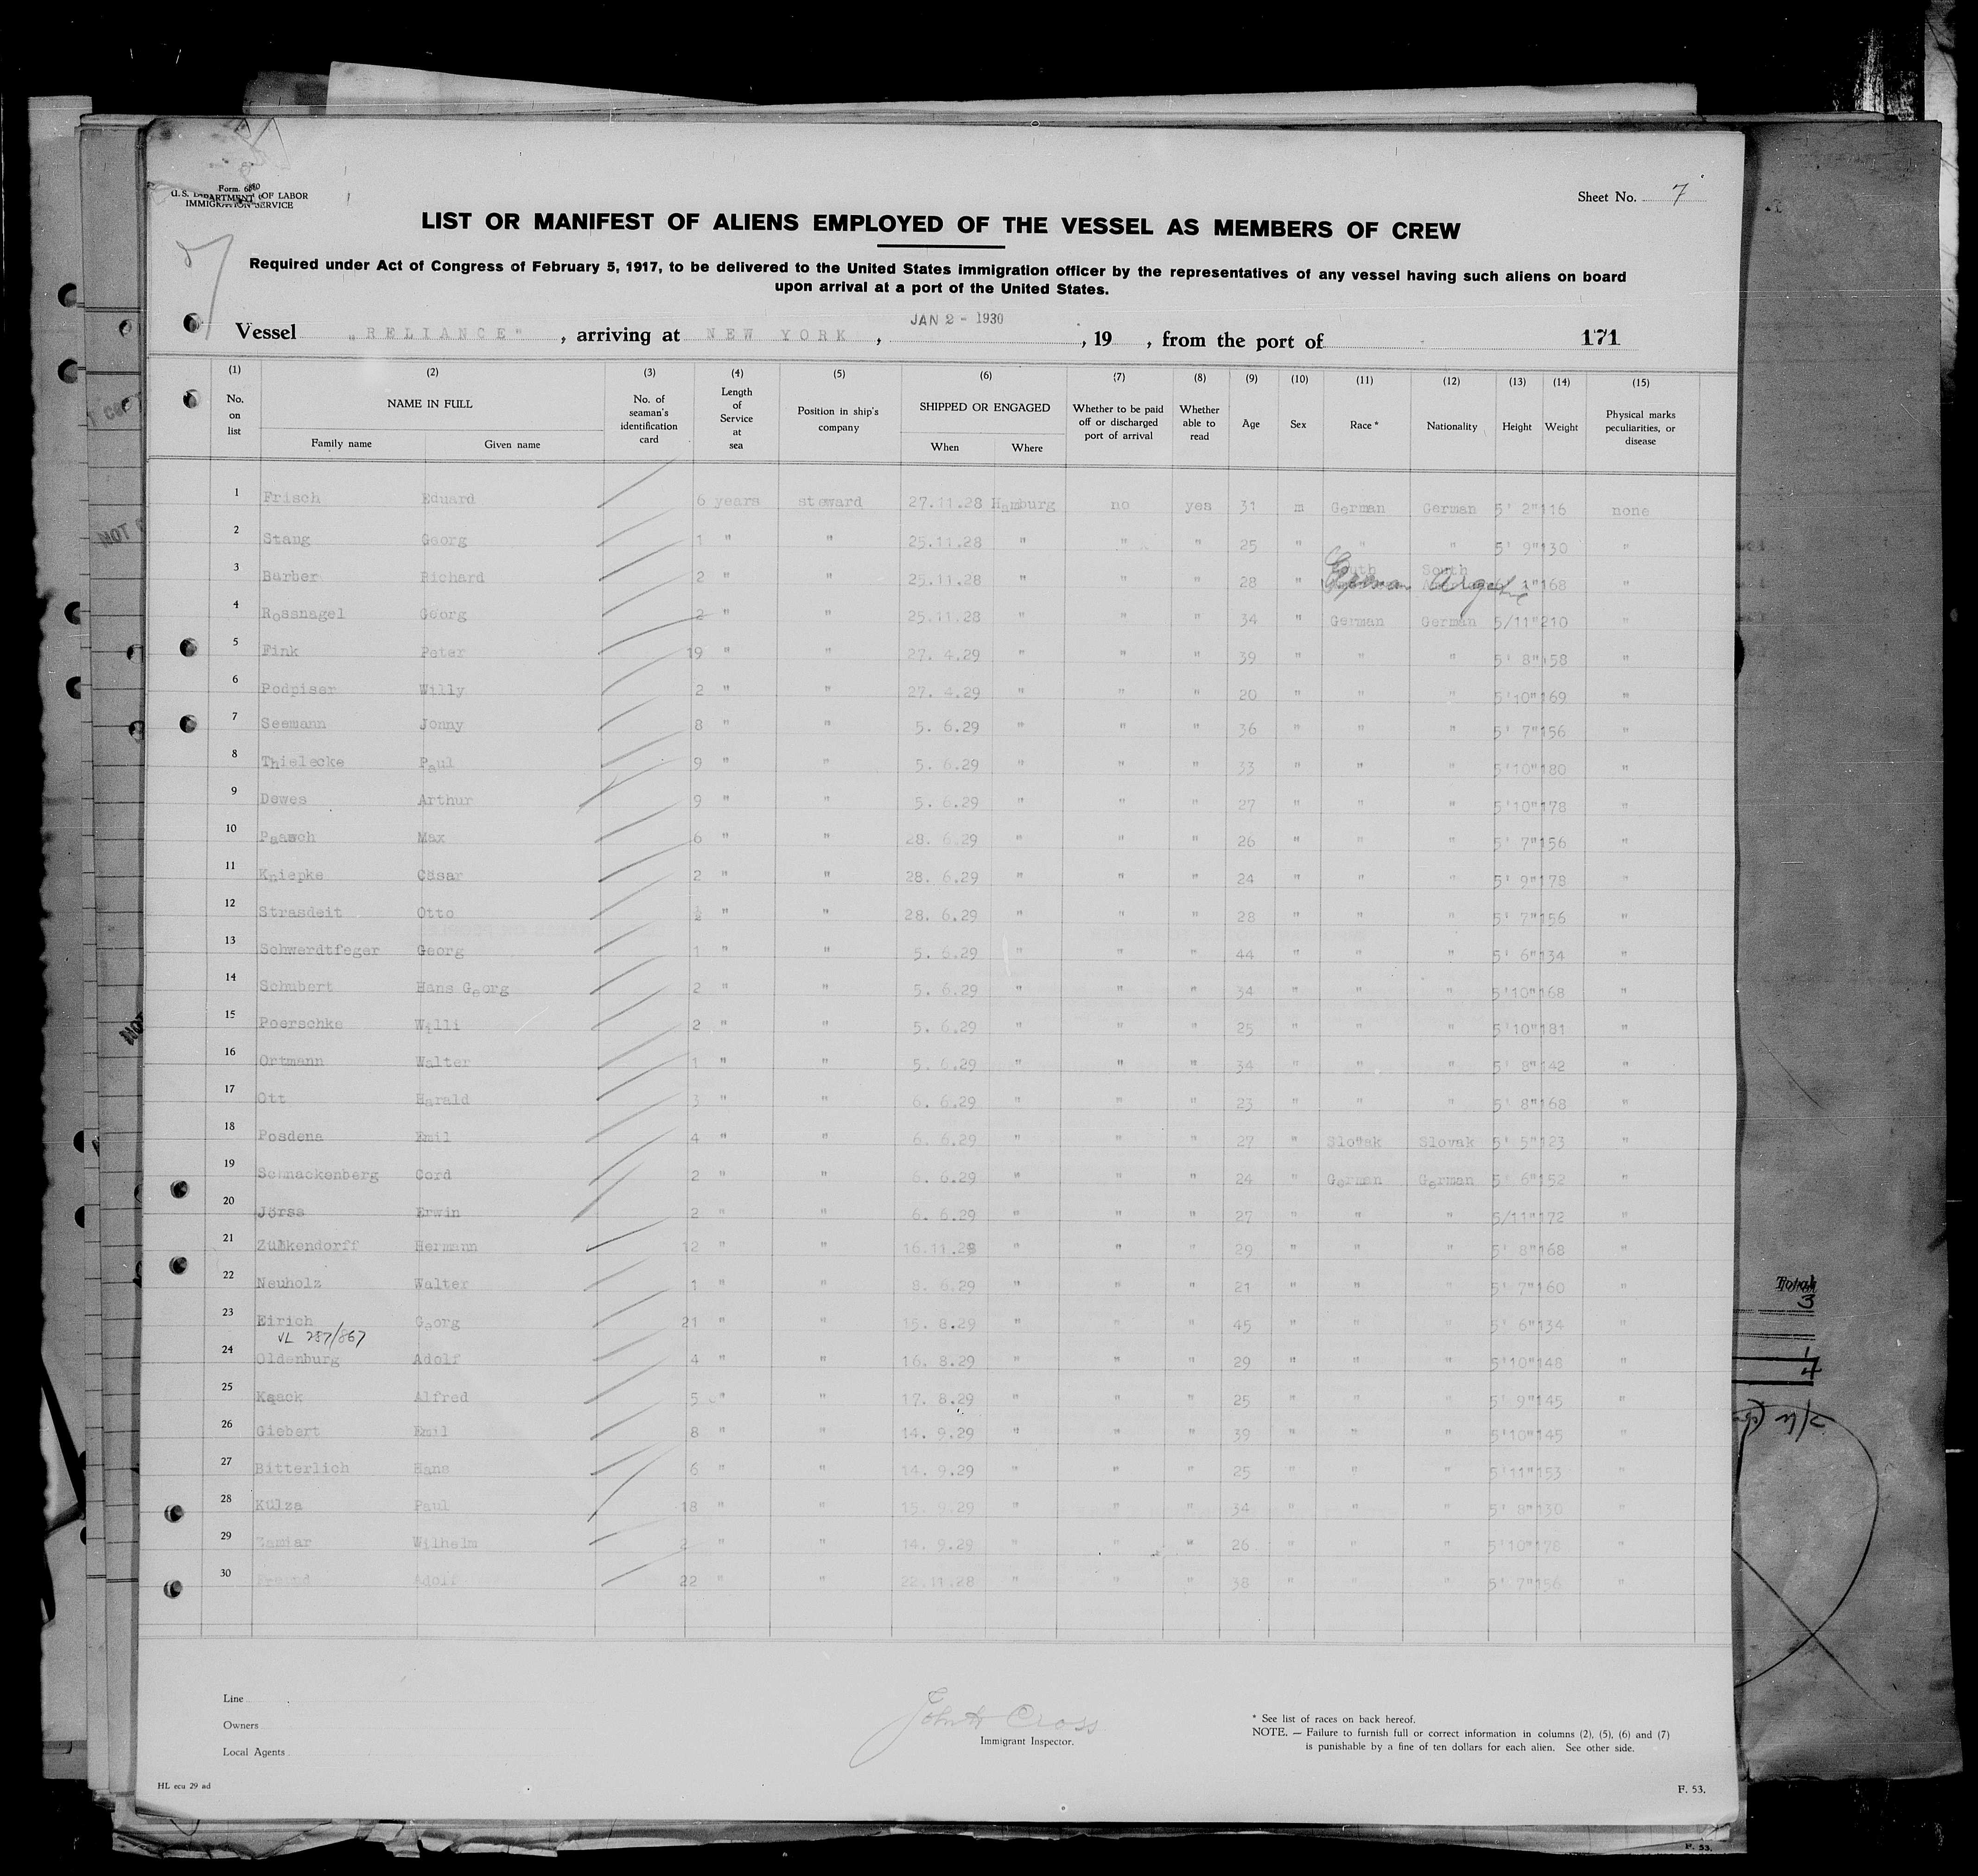 Form. 680
U.S. DEPARTMENT OF LABOR
IMMIGRATION SERVICE
Sheet No. 7
LIST OR MANIFEST OF ALIENS EMPLOYED OF THE VESSEL AS MEMBERS OF CREW
Required under Act of Congress of February 5, 1917, to be delivered to the United States immigration officer by the representatives of any vessel having such aliens on board
upon arrival at a port of the United States.
Vessel „RELIANCE", arriving at NEW YORK, JAN 2 - 1930, 19 , from the port of 171
(1) (2) (3) (4) (5) (6) (7) (8) (9) (10) (11) (12) (13) (14) (15)
No. on list NAME IN FULL Family name Given name No. of seaman's identification card Length of Service at sea Position in ship's company SHIPPED OR ENGAGED When Where Whether to be paid off or discharged port of arrival Whether able to read Age Sex Race * Nationality Height Weight Physical marks peculiarities, or disease
1 Frisch Eduard 6 years steward 27.11.28 Hamburg no yes 31 m German German 5' 2" 116 none
2 Stang Georg 1 " " 25.11.28 " " " 25 " " " 5' 9" 130 "
3 Barber Richard 2 " " 25.11.28 " " " 28 " German South Argentine 1" 168 "
4 Rossnagel Georg 2 " " 25.11.28 " " " 34 " German German 5/11" 210 "
5 Fink Peter 19 " " 27. 4.29 " " " 39 " " " 5' 8" 158 "
6 Podpiser Willy 2 " " 27. 4.29 " " " 20 " " " 5'10" 169 "
7 Seemann Jonny 8 " " 5. 6.29 " " " 36 " " " 5' 7" 156 "
8 Thielecke Paul 9 " " 5. 6.29 " " " 33 " " " 5'10" 180 "
9 Dewes Arthur 9 " " 5. 6.29 " " " 27 " " " 5'10" 178 "
10 Paasch Max 6 " " 28. 6.29 " " " 26 " " " 5' 7" 156 "
11 Kniepke Cäsar 2 " " 28. 6.29 " " " 24 " " " 5' 9" 178 "
12 Strasdeit Otto ½ " " 28. 6.29 " " " 28 " " " 5' 7" 156 "
13 Schwerdtfeger Georg 1 " " 5. 6.29 " " " 44 " " " 5' 6" 134 "
14 Schubert Hans Georg 2 " " 5. 6.29 " " " 34 " " " 5'10" 168 "
15 Poerschke Willi 2 " " 5. 6.29 " " " 25 " " " 5'10" 181 "
16 Ortmann Walter 1 " " 5. 6.29 " " " 34 " " " 5' 8" 142 "
17 Ott Harald 3 " " 6. 6.29 " " " 23 " " " 5' 8" 168 "
18 Posdena Emil 4 " " 6. 6.29 " " " 27 " Slovak Slovak 5' 5" 123 "
19 Schnackenberg Cord 2 " " 6. 6.29 " " " 24 " German German 5' 6" 152 "
20 Jörss Erwin 2 " " 6. 6.29 " " " 27 " " " 5/11" 172 "
21 Zühkendorff Hermann 12 " " 16.11.28 " " " 29 " " " 5' 8" 168 "
22 Neuholz Walter 1 " " 8. 6.29 " " " 21 " " " 5' 7" 160 "
23 Eirich Georg 21 " " 15. 8.29 " " " 45 " " " 5' 6" 134 "
VL 287/867
24 Oldenburg Adolf 4 " " 16. 8.29 " " " 29 " " " 5'10" 148 "
25 Kaack Alfred 5 " " 17. 8.29 " " " 25 " " " 5' 9" 145 "
26 Giebert Emil 8 " " 14. 9.29 " " " 39 " " " 5'10" 145 "
27 Bitterlich Hans 6 " " 14. 9.29 " " " 25 " " " 5'11" 153 "
28 Külza Paul 18 " " 15. 9.29 " " " 34 " " " 5' 8" 130 "
29 Zamiar Wilhelm 2 " " 14. 9.29 " " " 26 " " " 5'10" 178 "
30 Freund Adolf 22 " " 22.11.28 " " " 38 " " " 5' 7" 156 "
Line
Owners
Local Agents
John H Cross
Immigrant Inspector.
* See list of races on back hereof.
NOTE. — Failure to furnish full or correct information in columns (2), (5), (6) and (7)
is punishable by a fine of ten dollars for each alien. See other side.
HL ecu 29 ad
F. 53.
Total
3
1
4
F. 53.